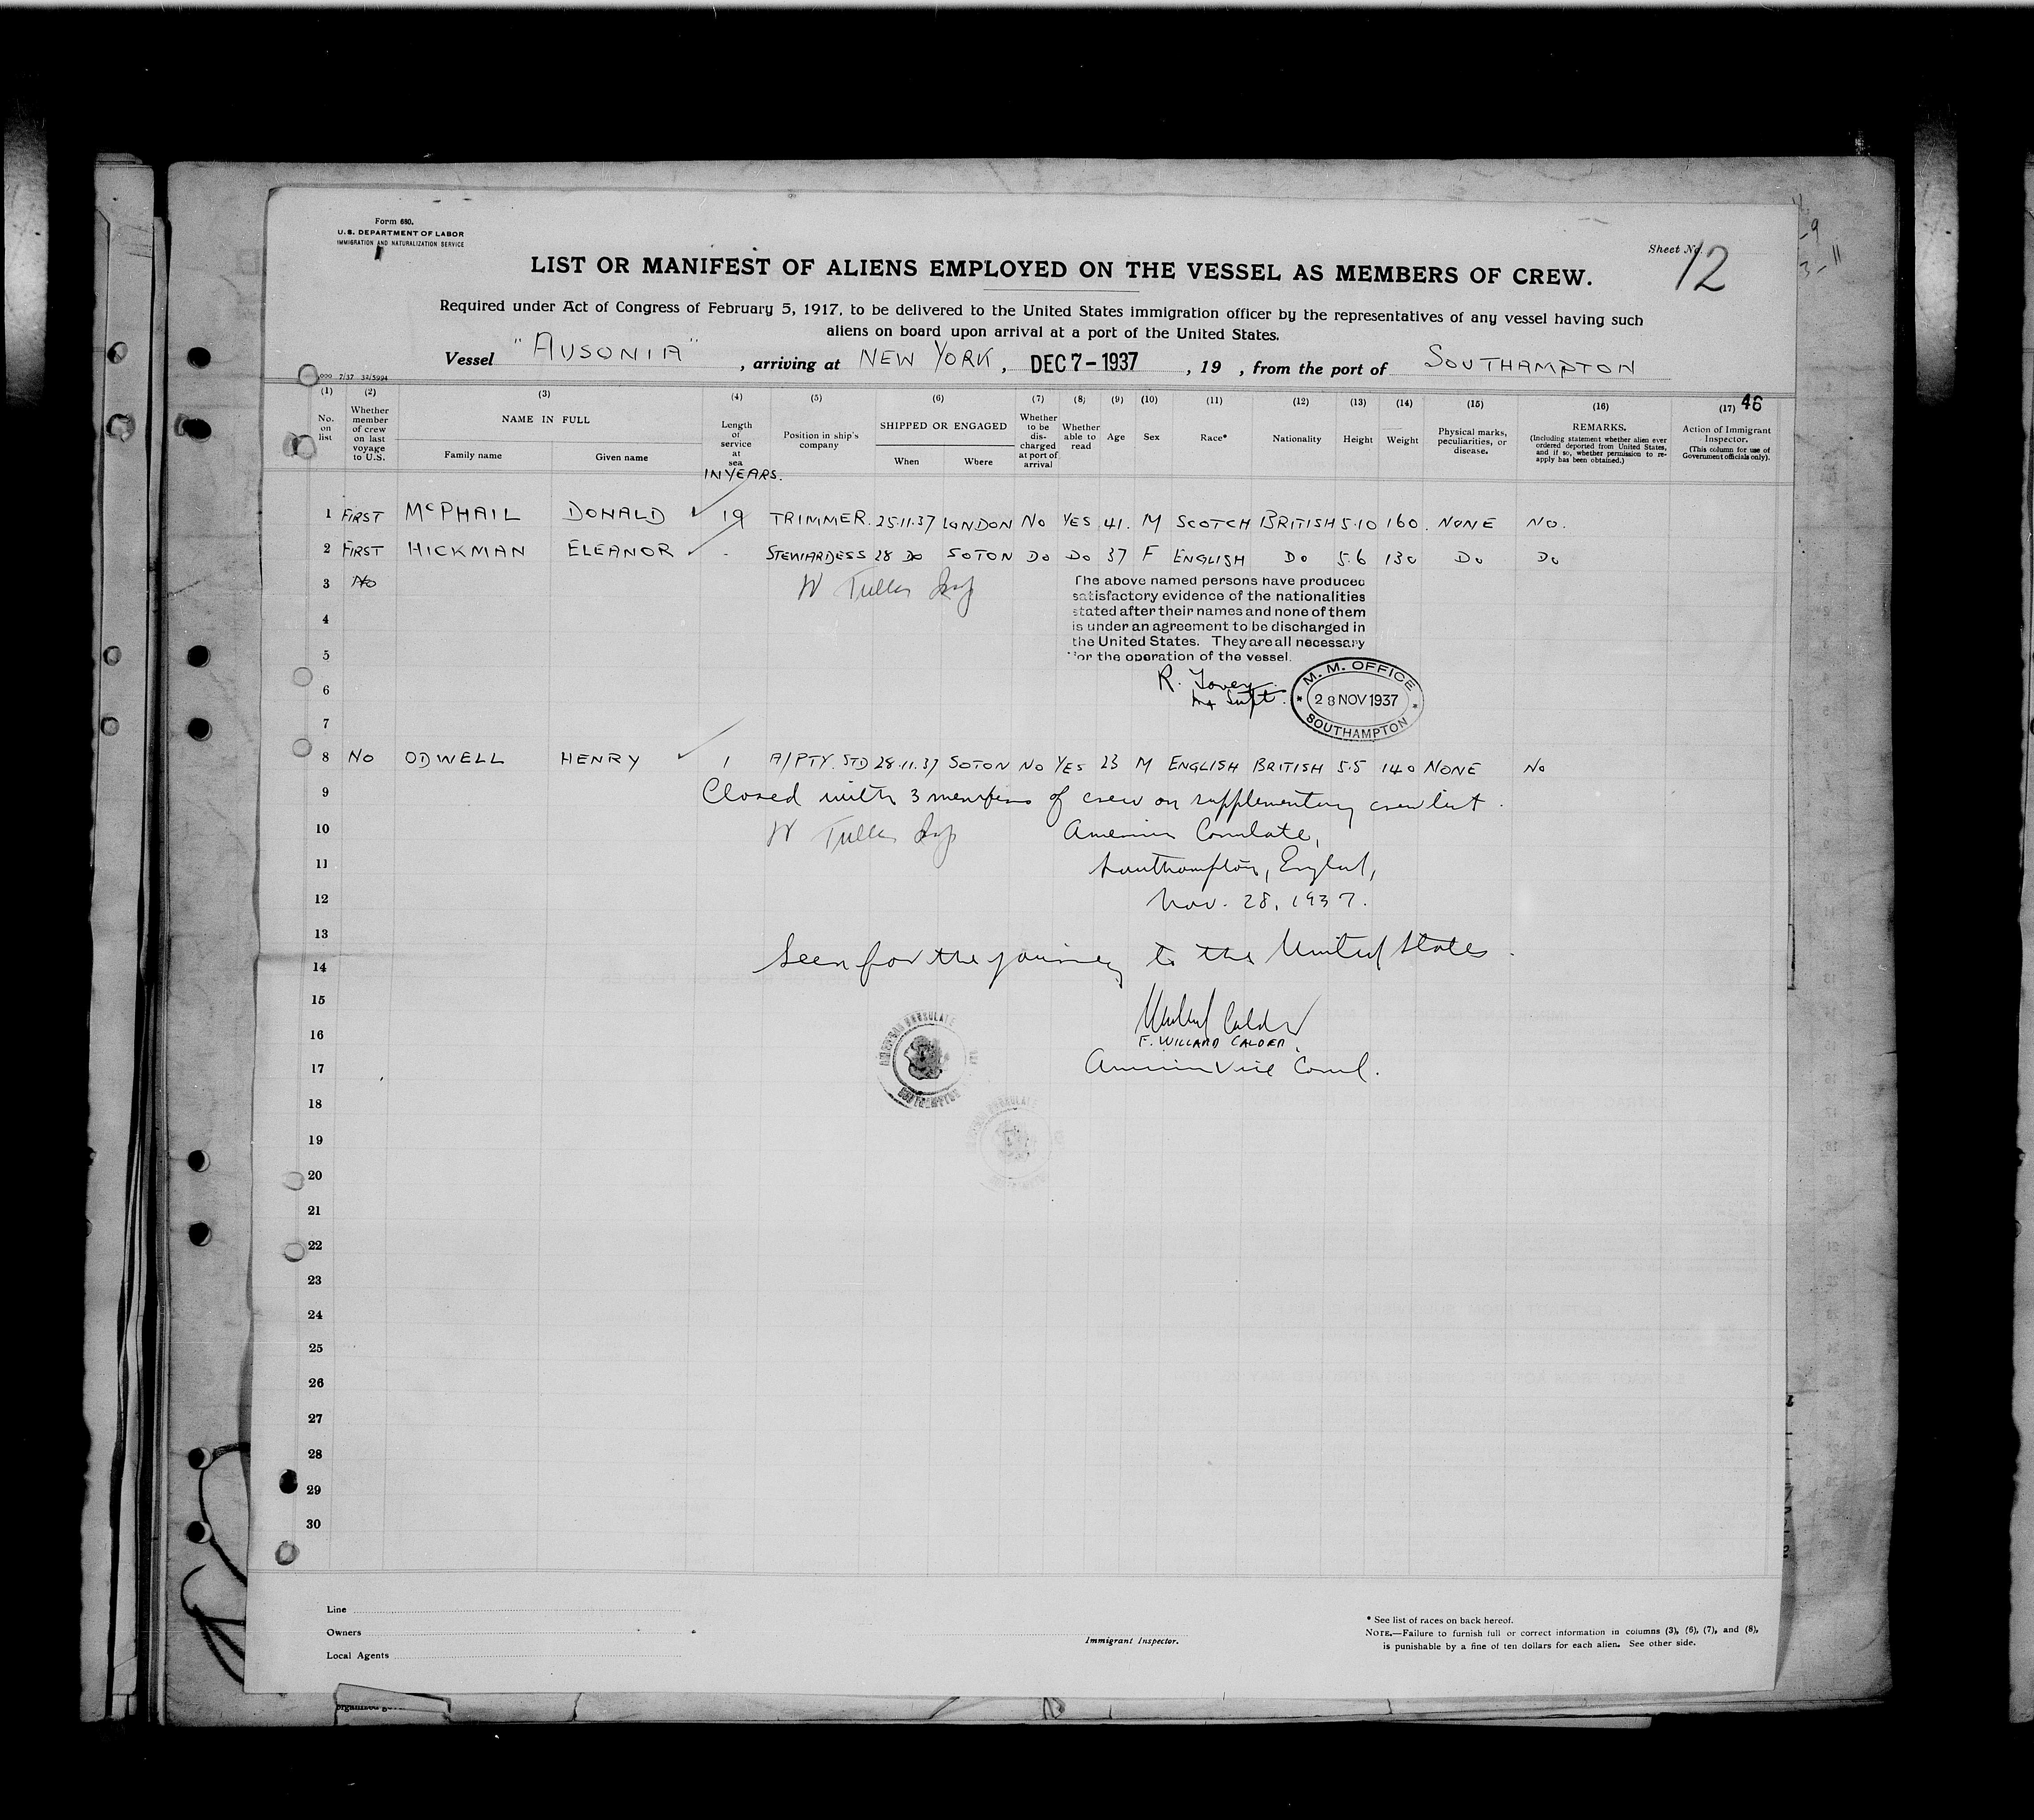 Form 680.
U.S. DEPARTMENT OF LABOR
IMMIGRATION AND NATURALIZATION SERVICE
Sheet No. 12
LIST OR MANIFEST OF ALIENS EMPLOYED ON THE VESSEL AS MEMBERS OF CREW.
Required under Act of Congress of February 5, 1917, to be delivered to the United States immigration officer by the representatives of any vessel having such
aliens on board upon arrival at a port of the United States.
Vessel "AUSONIA", arriving at NEW YORK, DEC 7-1937, 19 , from the port of SOUTHAMPTON
000 7/37 32/5994
(1) (2) (3) (4) (5) (6) (7) (8) (9) (10) (11) (12) (13) (14) (15) (16) (17) 46
No. on list
Whether member of crew on last voyage to U.S.
NAME IN FULL
Family name Given name
Length of service at sea
IN YEARS.
Position in ship's company
SHIPPED OR ENGAGED
When Where
Whether to be discharged at port of arrival
Whether able to read
Age
Sex
Race*
Nationality
Height
Weight
Physical marks, peculiarities, or disease.
REMARKS.
(Including statement whether alien ever ordered deported from United States, and if so, whether permission to reapply has been obtained.)
Action of Immigrant Inspector.
(This column for use of Government officials only).
1 FIRST McPHAIL DONALD 19 TRIMMER. 25.11.37 LONDON NO YES 41. M SCOTCH BRITISH 5.10 160. NONE NO.
2 FIRST HICKMAN ELEANOR - STEWARDESS 28 DO SOTON DO DO 37 F ENGLISH DO 5.6 130 DO DO
3 No
The above named persons have produced
satisfactory evidence of the nationalities
stated after their names and none of them
4
is under an agreement to be discharged in
the United States. They are all necessary
5
for the operation of the vessel.
6
R. Tovey
Supt.
M. M. OFFICE
28 NOV 1937
SOUTHAMPTON
7
8 NO ODWELL HENRY 1 A/PTY. STD 28.11.37 SOTON NO YES 23 M ENGLISH BRITISH 5.5 140 NONE NO
9 Closed with 3 members of crew on supplementary crew list.
10 American Consulate,
11 Southampton, England,
12 Nov. 28, 1937.
13
14 Seen for the journey to the United States.
15
16
F. WILLARD CALDER
17 American Vice Consul.
AMERICAN CONSULATE
SOUTHAMPTON
18
19
20
21
22
23
24
25
26
27
28
29
30
Line
Owners
Local Agents
Immigrant Inspector.
* See list of races on back hereof.
NOTE.—Failure to furnish full or correct information in columns (3), (6), (7), and (8),
is punishable by a fine of ten dollars for each alien. See other side.